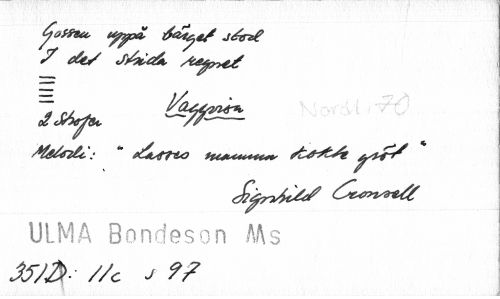 Gossen uppå bärget stod
I det strida regnet
2 Strofer
Vaggvisa
Nordl. 70
Melodi: "Lasses mamma kokte gröt"
Signhild Cronvall
ULMA Bondeson Ms
351D: 11c s 97